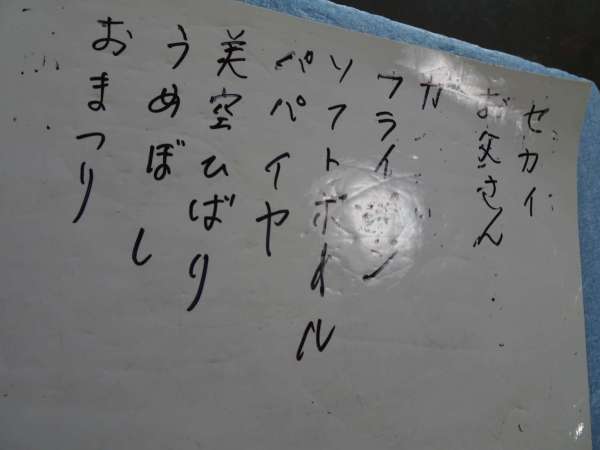 ゼカイ
お父さん
ガ
フライ ン
ソフトボオル
パパイヤ
美空ひばり
うめぼし
おまつり